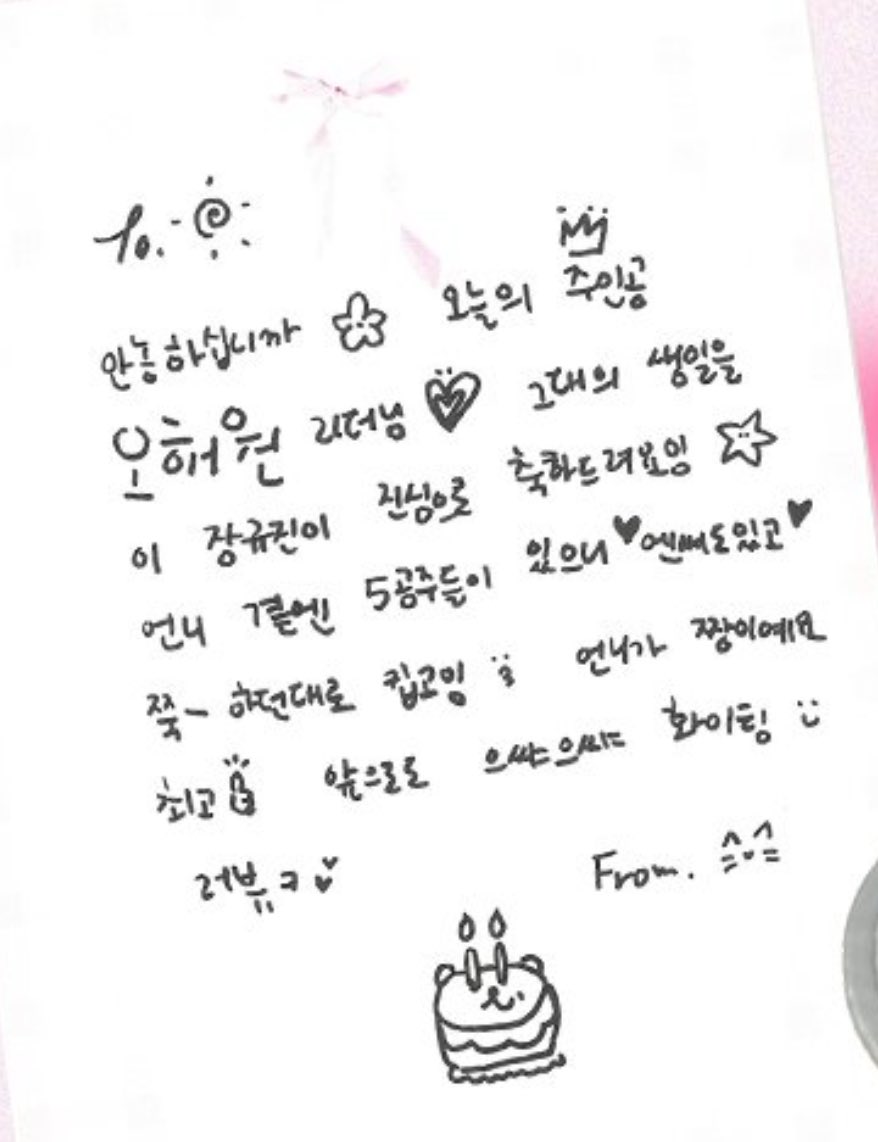 To.
안뇽하십니까 오늘의 주인공
오해원 리더님 그대의 생일을
이 장규진이 진심으로 축하드려요잉
언니 곁엔 5공주들이 있으니 ♥엔써도있고♥
쭉- 하던대로 킵고잉 언니가 짱이예요
최고 앞으로도 으쌰으쌰 화이팅
러뷰ㅋ
From.